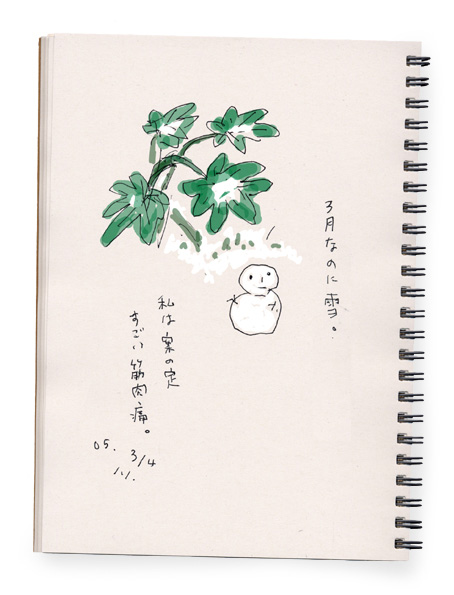 3月なのに雪。
私は案の定
すごい筋肉痛。
05. 3/4